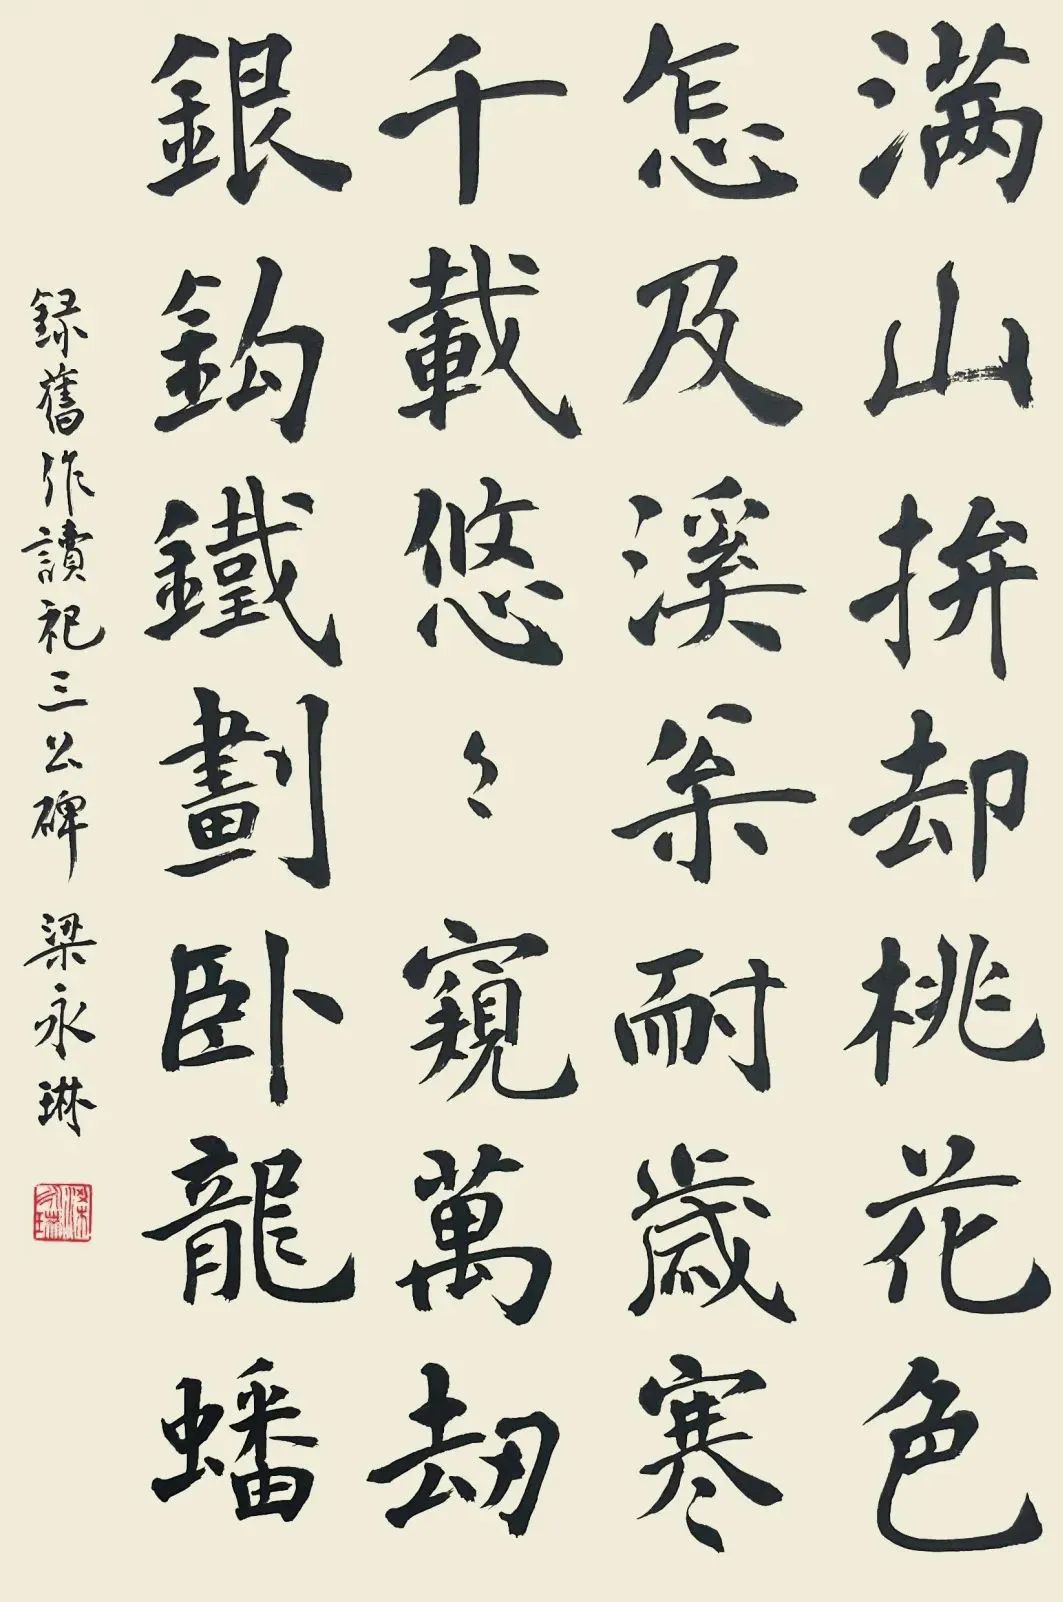 满山拚却桃花色
怎及溪枀耐歲寒
千載悠々窺萬刧
銀鈎鐵劃卧龍蟠
録舊作讀祀三公碑 梁永琳